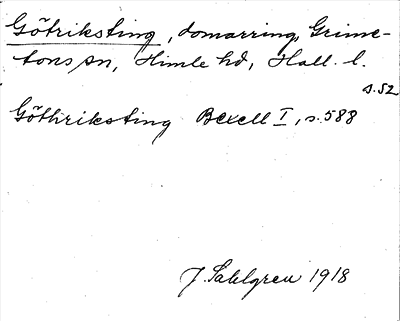 Götriksting, domarring, Grime-
tons sn, Himle hd, Hall. l.
s. 52
Göthriksting Bexell I, s. 588
J. Sahlgren 1918